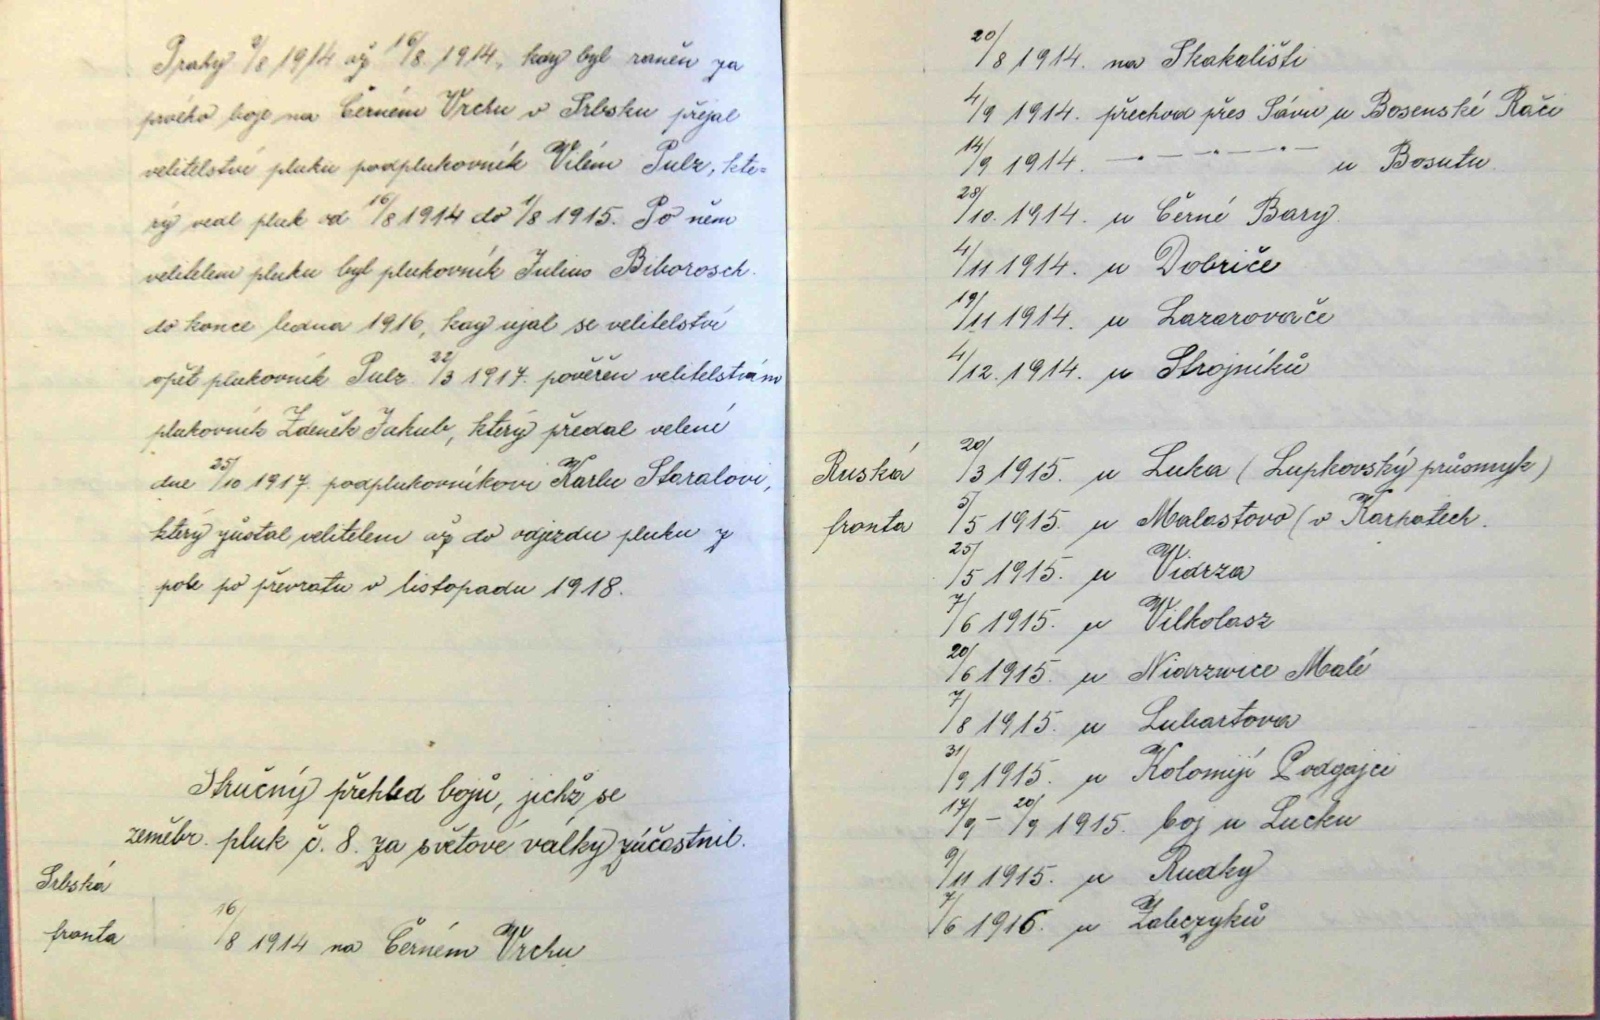 Prahy 9/8 1914 až 16/8 1914, kdy byl raněn za
prvého boje na Černém Vrchu v Srbsku přejal
velitelství pluku podplukovník Vilém Pulz, kte-
rý vedl pluk od 16/8 1914 do 1/8 1915. Po něm
velitelem pluku byl plukovník Julius Bihorosch.
do konce ledna 1916, kdy ujal se velitelství
opět plukovník Pulz. 22/3 1917. pověřen velitelstvím
plukovník Zdeněk Jakub, který předal velení
dne 25/10 1917. podplukovníkovi Karlu Staralovi,
který zůstal velitelem až do odjezdu pluku z
pole po převratu v listopadu 1918.
Stručný přehled bojů, jichž se
zeměbr. pluk č. 8. za světové války zúčastnil.
Srbská
fronta
16/8 1914 na Černém Vrchu
20/8 1914. na Skakališti
4/9 1914. přechod přes Sávu u Bosenské Rači
14/9 1914. —·—·—·— u Bosutu
28/10. 1914. u Černé Bary
4/11 1914. u Dobriče
19/11 1914. u Lazarovače
4/12. 1914. u Strojníků
Ruská
fronta
20/3 1915. u Luka (Lupkovský průsmyk)
5/5 1915. u Malastovo (v Karpatech.
25/5 1915. u Vidrza
7/6 1915. u Vilkolasz
20/6 1915. u Nidrzwice Malé
7/8 1915. u Lubartova
31/9 1915. u Kolomiji Podgajci
17/9 – 20/9 1915. boj u Lucku
9/11 1915. u Rudky
7/6 1916. u Zabczyků